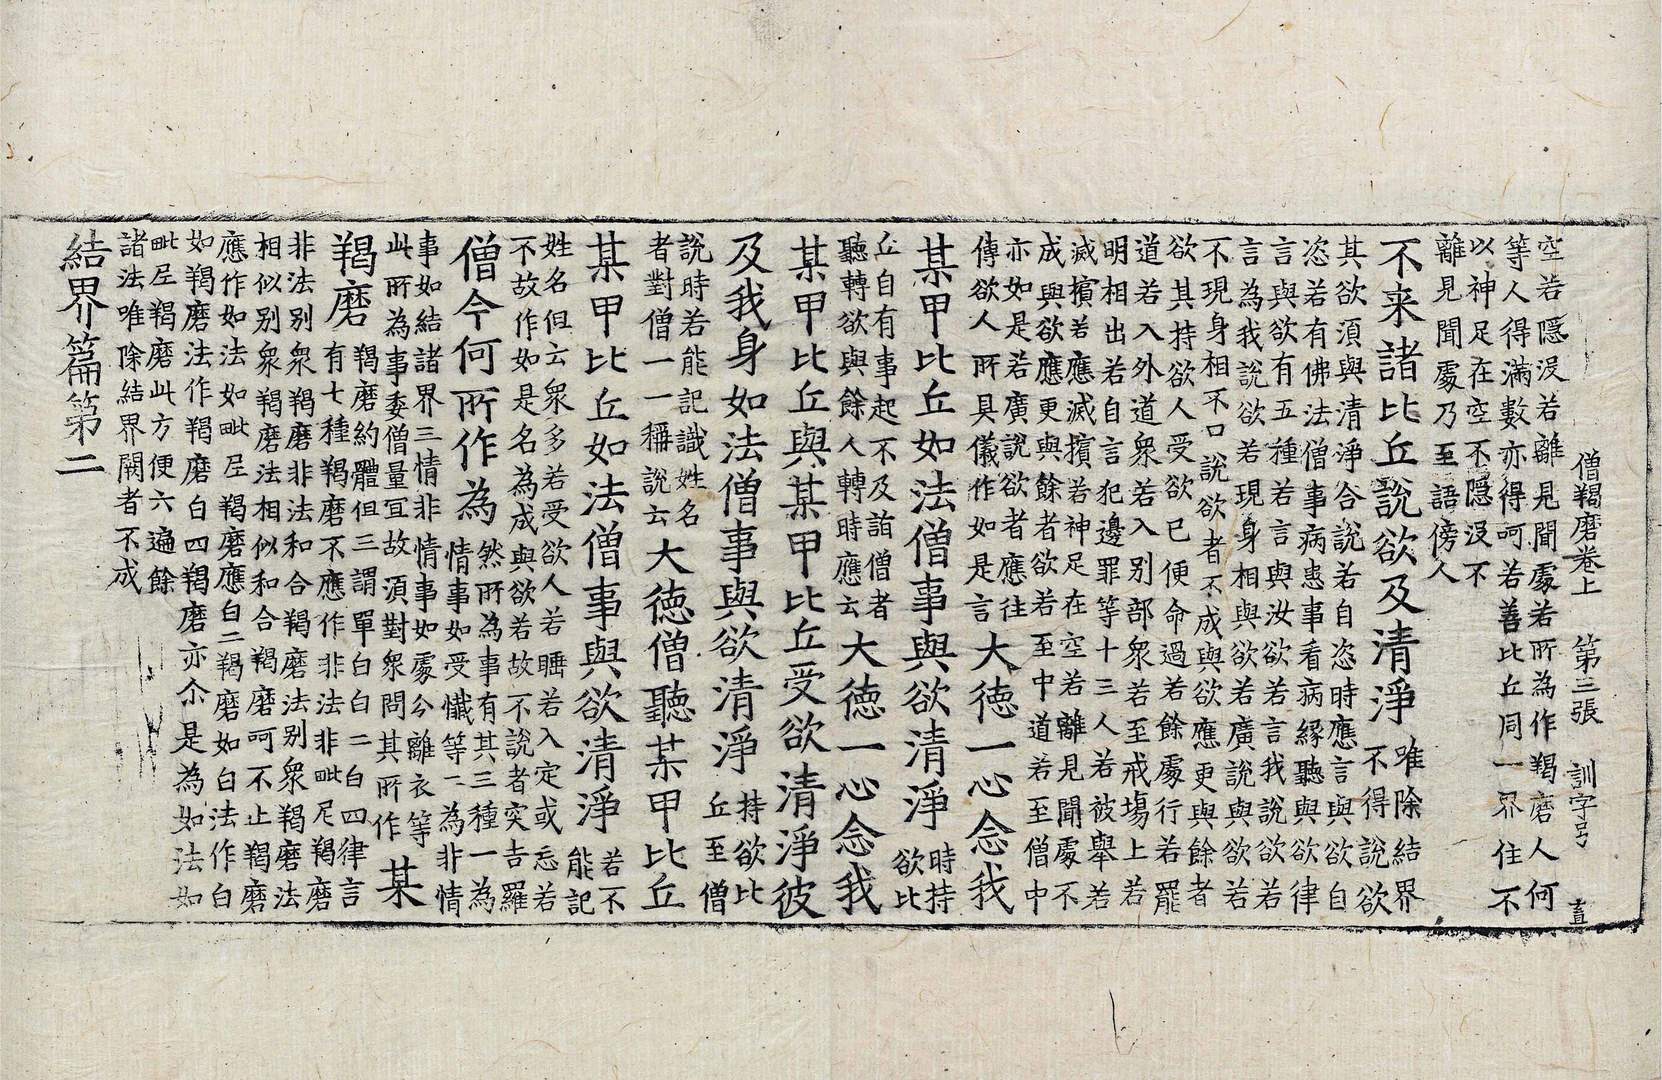 僧羯磨卷上 第三張 訓字号
空若隱沒若離見聞處若所為作羯磨人何
等人得滿數亦得呵若善比丘同一界住不
以神足在空不隱沒不
離見聞處乃至語傍人
不来諸比丘說欲及清淨 唯除結界
不得說欲
其欲須與清淨合說若自恣時應言與欲自
恣若有佛法僧事病患事看病緣聽與欲律
言與欲有五種若言與汝欲若言我說欲若
言為我說欲若現身相與欲若廣說與欲若
不現身相不口說欲者不成與欲應更與餘者
欲其持欲人受欲已便命過若餘處行若罷
道若入外道眾若入別部眾若至戒塲上若
明相出若自言犯邊罪等十三人若被舉若
滅擯若應滅擯若神足在空若離見聞處不
成與欲應更與餘者欲若至中道若至僧中
亦如是若廣說欲者應往
傳欲人所具儀作如是言 大德一心念我
某甲比丘如法僧事與欲清淨 時持
欲比
丘自有事起不及詣僧者
聽轉欲與餘人轉時應云 大德一心念我
某甲比丘與某甲比丘受欲清淨彼
及我身如法僧事與欲清淨 持欲比
丘至僧
說時若能記識姓名
者對僧一一稱說云 大德僧聽某甲比丘
某甲比丘如法僧事與欲清淨 若不
能記
姓名但云眾多若受欲人若睡若入定或忘若
不故作如是名為成與欲若故不說者突吉羅
僧今何所作為 然所為事有其三種一為
情事如受懺等二為非情
事如結諸界三情非情事如處分離衣等
此所為事委僧量宜故須對眾問其所作 某
羯磨 羯磨約體但三謂單白白二白四律言
有七種羯磨不應作非法非毗尼羯磨
非法別眾羯磨非法和合羯磨法別眾羯磨法
相似別眾羯磨法相似和合羯磨呵不止羯磨
應作如法如毗尼羯磨應白二羯磨如白法作白
如羯磨法作羯磨白四羯磨亦尒是為如法如
毗尼羯磨此方便六遍餘
諸法唯除結界闕者不成
結界篇第二